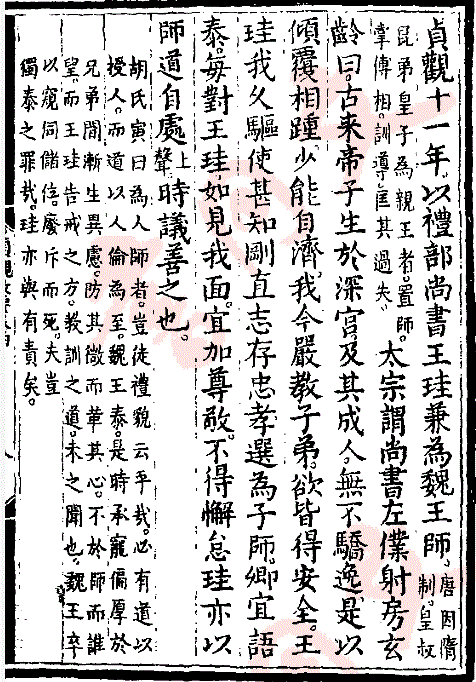 貞觀十一年。以禮部尚書王珪兼為魏王師。唐因隋制。皇叔
昆弟皇子為親王者。置師。掌傅相。訓導匡其過失。太宗謂尚書左僕射房玄
齡曰。古来帝子生於深宮。及其成人。無不驕逸。是以
傾覆相踵。少能自濟。我今嚴教子弟。欲皆得安全。王
珪我久驅使。甚知剛直。志存忠孝。選為子師。卿宜語
泰。每對王珪。如見我面。宜加尊敬。不得懈怠。珪亦以
師道自處上聲時議善之也。
胡氏寅曰。為人師者。豈徒禮貌云乎哉。必有道以
授人。而道以人倫為至。魏王泰。是時承寵偏厚於
兄弟間漸生異慮。防其微而革其心。不於師而誰
望。而王珪告戒之方。教訓之道。未之聞也。魏王卒
以窺伺儲廢斥而死。夫豈
獨泰之罪哉。珪亦與有責矣。